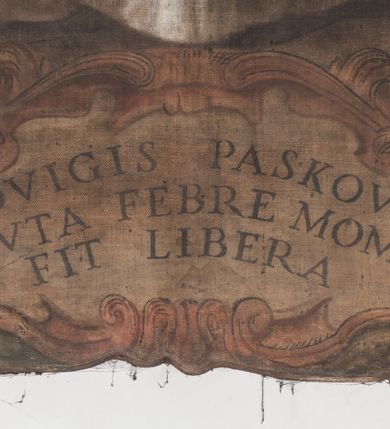 OVIGIS PASKOV
VTA FEBRE MOM
FIT LIBERA